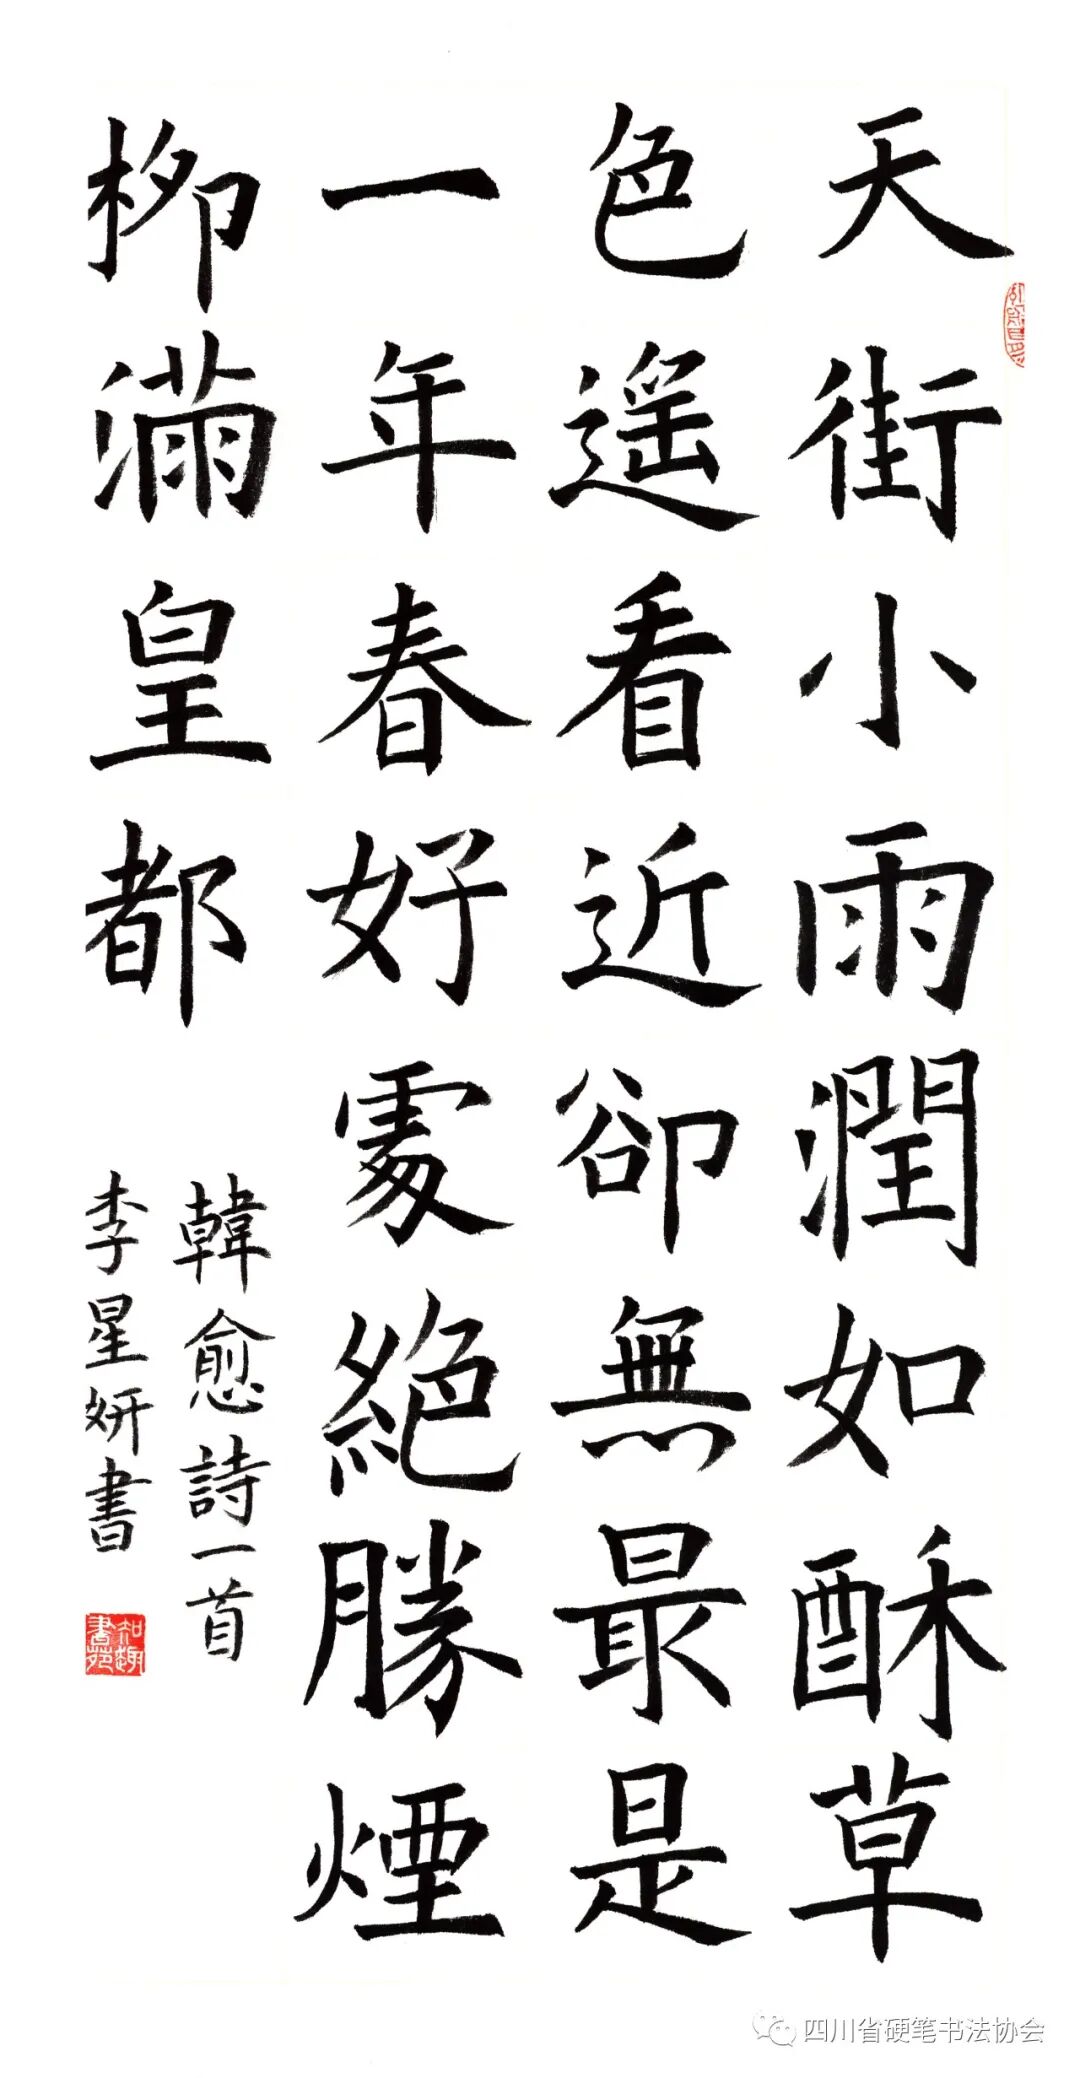 天街小雨潤如酥草
色遥看近卻無最是
一年春好處絕勝煙
柳滿皇都
韓愈詩一首
李星妍書
知趣
書苑
四川省硬笔书法协会